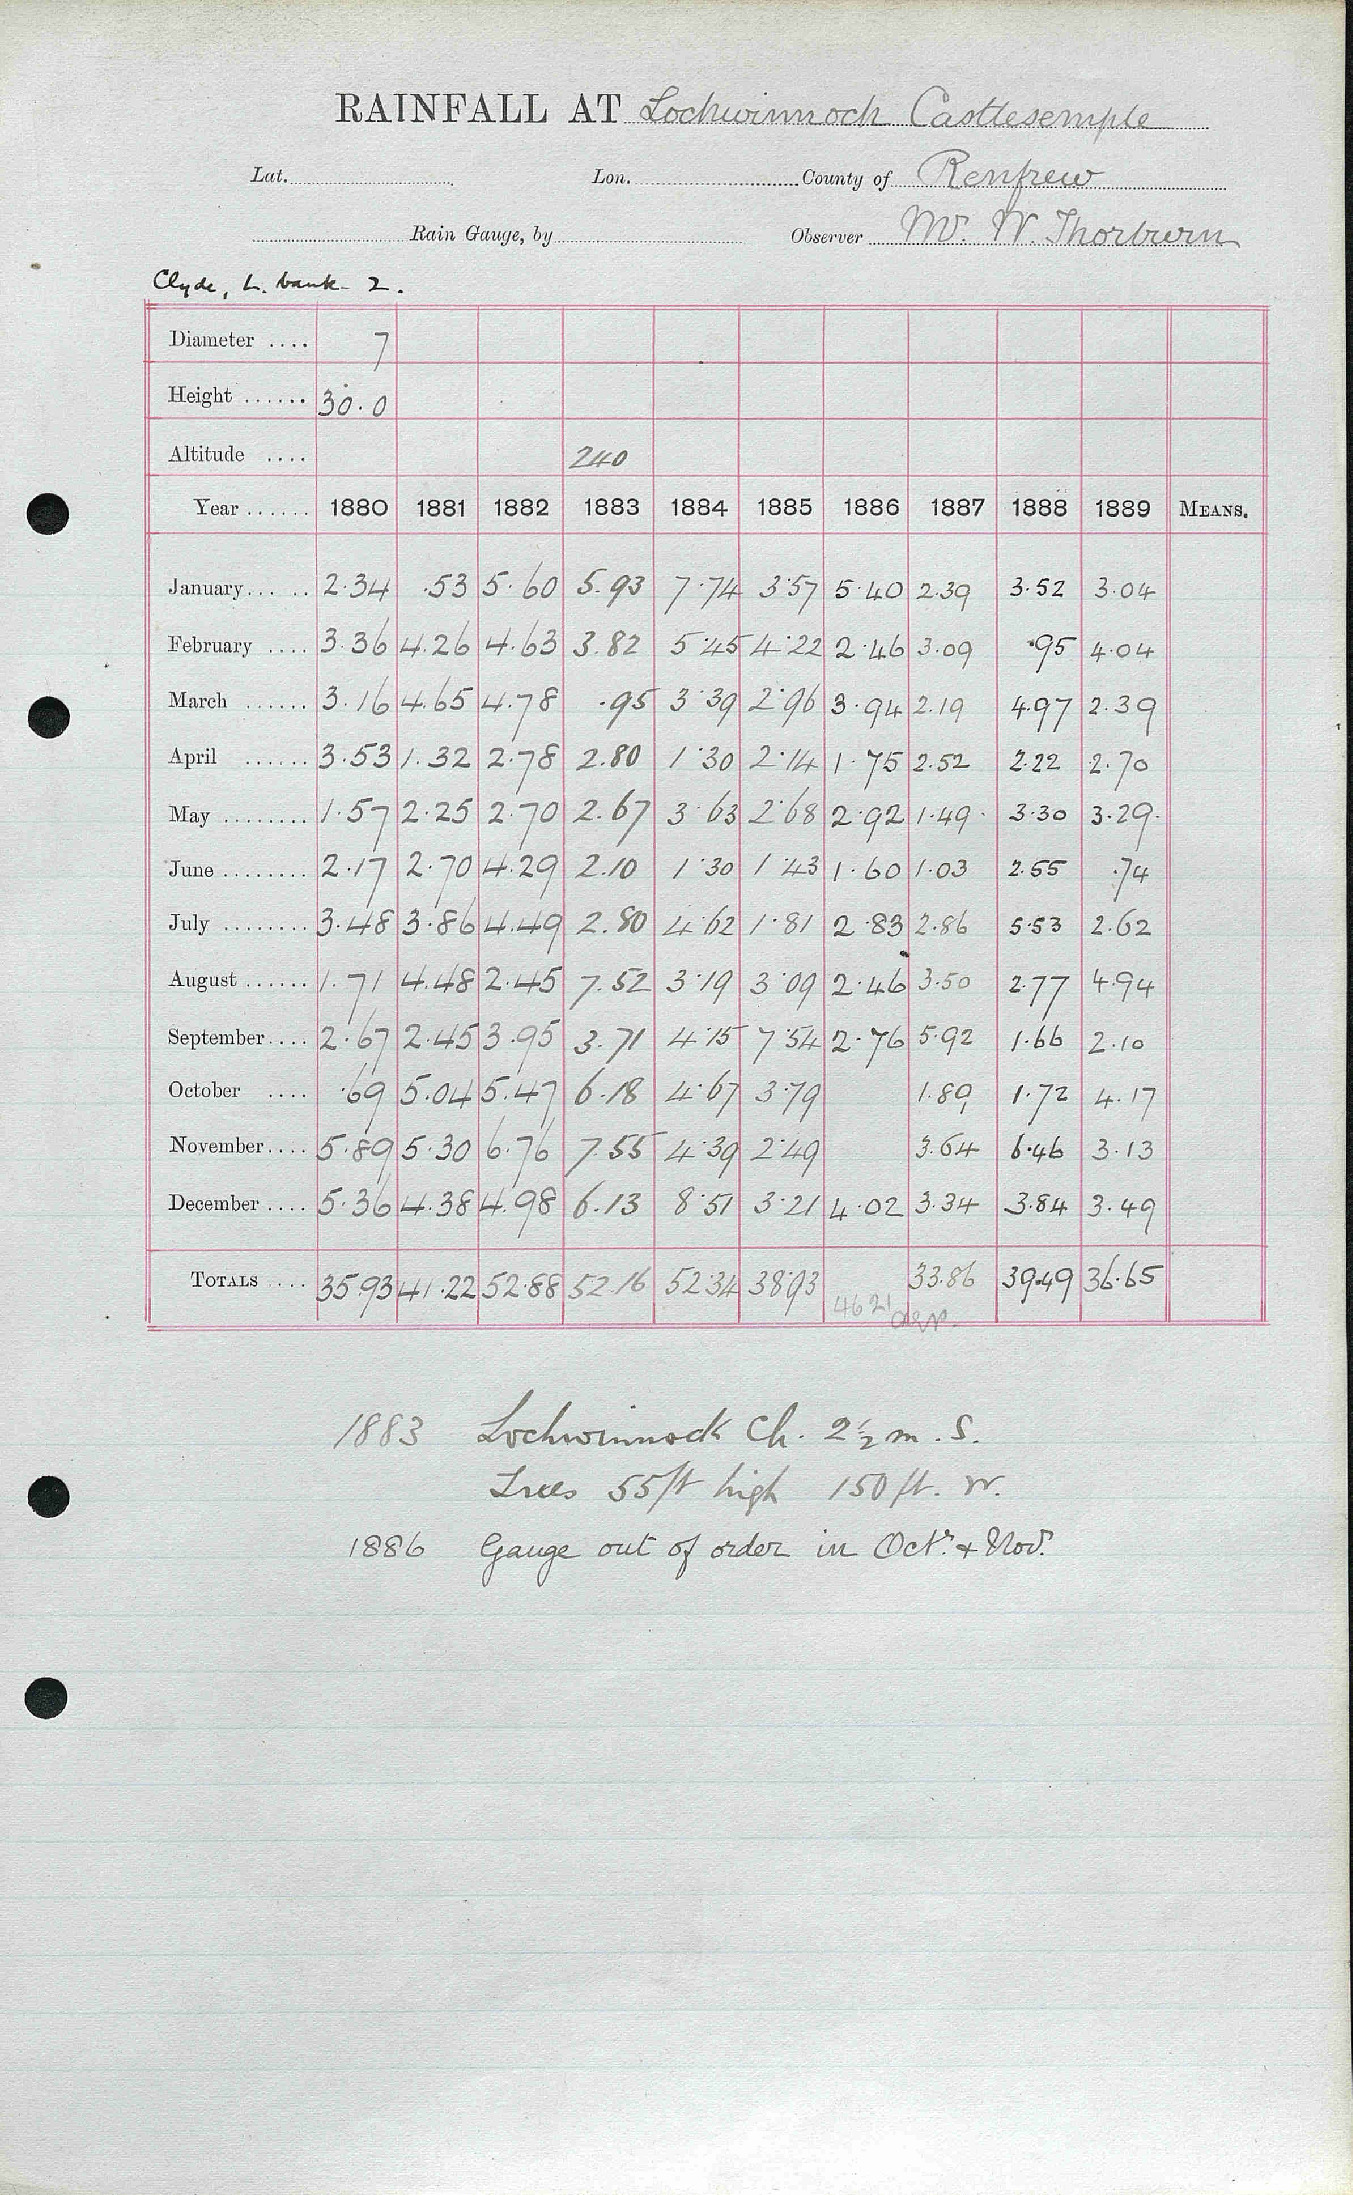 RAINFALL AT Lochwinnoch Castlesemple
Lat. Lon. County of Renfrew
Rain Gauge, by Observer Mr. W. Thorburn
Clyde, L. bank 2.
Diameter .... 7
Height ...... 30.0
Altitude .... 240
Year ...... 1880 1881 1882 1883 1884 1885 1886 1887 1888 1889 MEANS.
January.... .. 2.34 .53 5.60 5.93 7.74 3.57 5.40 2.39 3.52 3.04
February .... 3.36 4.26 4.63 3.82 5.45 4.22 2.46 3.09 .95 4.04
March ...... 3.16 4.65 4.78 .95 3.39 2.96 3.94 2.19 4.97 2.39
April ...... 3.53 1.32 2.78 2.80 1.30 2.14 1.75 2.52 2.22 2.70
May ........ 1.57 2.25 2.70 2.67 3.63 2.68 2.92 1.49 3.30 3.29
June ........ 2.17 2.70 4.29 2.10 1.30 1.43 1.60 1.03 2.55 .74
July ........ 3.48 3.86 4.49 2.80 4.62 1.81 2.83 2.86 5.53 2.62
August ...... 1.71 4.48 2.45 7.52 3.19 3.09 2.46 3.50 2.77 4.94
September.... 2.67 2.45 3.95 3.71 4.15 7.54 2.76 5.92 1.66 2.10
October .... .69 5.04 5.47 6.18 4.67 3.79 1.89 1.72 4.17
November.... 5.89 5.30 6.76 7.55 4.39 2.49 3.64 6.46 3.13
December .... 5.36 4.38 4.98 6.13 8.51 3.21 4.02 3.34 3.84 3.49
TOTALS .... 35.93 41.22 52.88 52.16 52.34 38.93 33.86 39.49 36.65
46 21
1883 Lochwinnock Ch. 2½ m. S.
Trees 55 ft high 150 ft. W.
1886 Gauge out of order in Octr. & Nov.